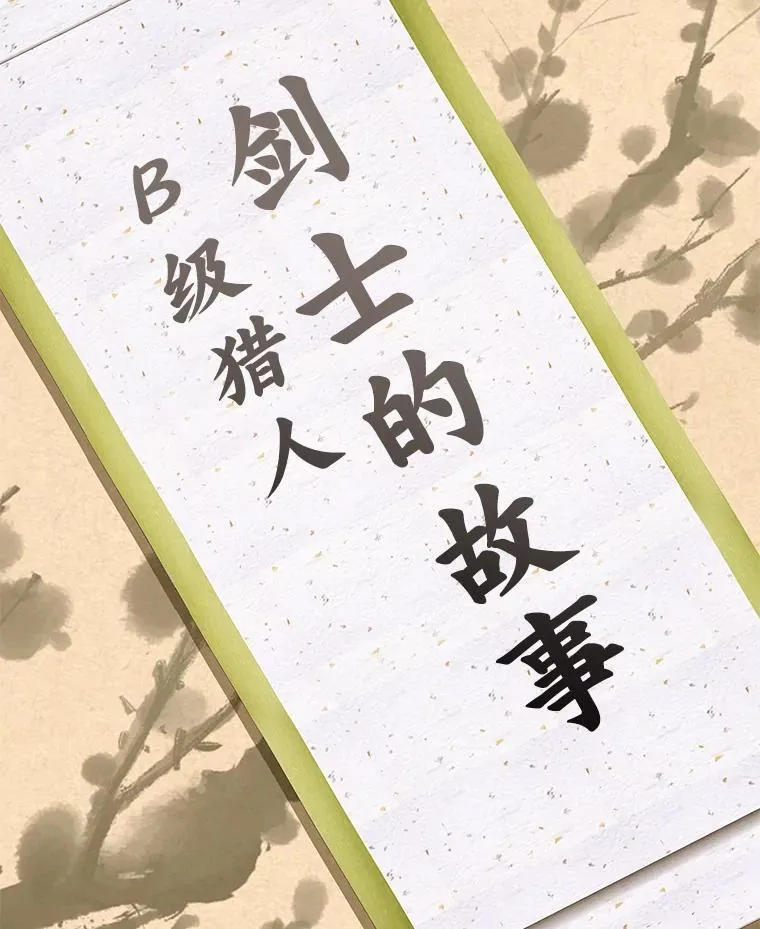 剑士的故事
B级猎人